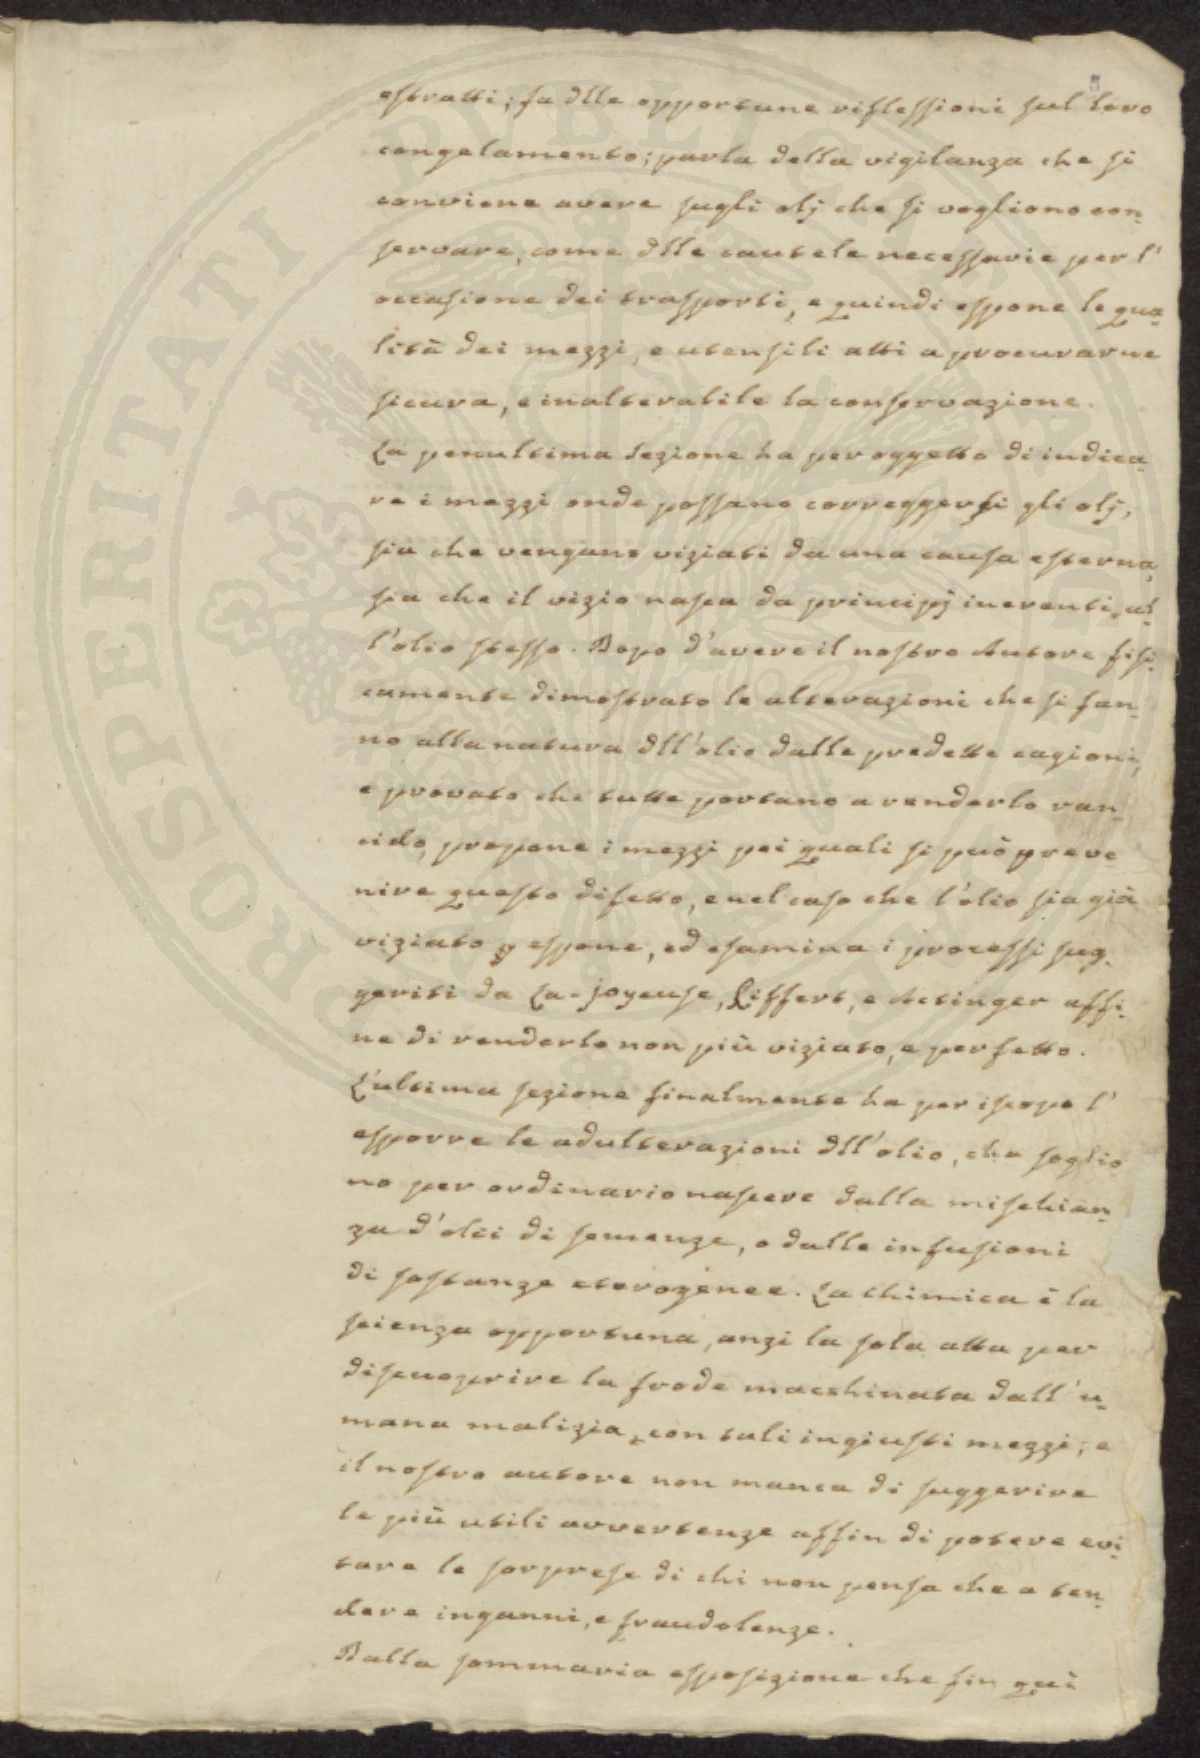 5
estratti; fa dlle opportune riflessioni sul loro
congelamento; parla della vigilanza che si
conviene avere sugli olj che si vogliono con-
servare, come dlle cautele necessarie per l'
occasione dei trasporti, e quindi espone le qua-
lità dei mezzi, e utensili atti a procurarne
sicura, e inalterabile la conservazione.
La penultima sezione ha per oggetto di indica-
re i mezzi onde possano correggersi gli olj,
sia che vengano viziati da una causa esterna,
sia che il vizio nasca da principj inerenti al-
l'olio stesso. Dopo d'avere il nostro Autore fisi-
camente dimostrato le alterazioni che si fan-
no alla natura dll'olio dalle predette cagioni,
e provato che tutte portano a renderlo ran-
cido, propone i mezzi pei quali si può preve-
nire questo difetto, e nel caso che l'olio sia già
viziato espone, ed esamina i processi sug-
geriti da La-joyeuse, Siffert, e Actinger affi-
ne di renderlo non più viziato, e perfetto.
L'ultima sezione finalmente ha per iscopo l'
esporre le adulterazioni dll'olio, che soglio
no per ordinario nascere dalla mischian-
za d'olii di semenze, o dalle infusioni
di sostanze eterogenee. La chimica è la
scienza opportuna, anzi la sola atta per
discuoprire la frode macchinata dall'u-
mana malizia, con tali ingiusti mezzi; e
il nostro autore non manca di suggerire
le più utili avvertenze affin di potere evi-
tare le sorprese di chi non pensa che a ten-
dere inganni, e fraudolenze.
Dalla sommaria esposizione che fin quì
PROSPERITATI PUBLICAE AUGENDAE